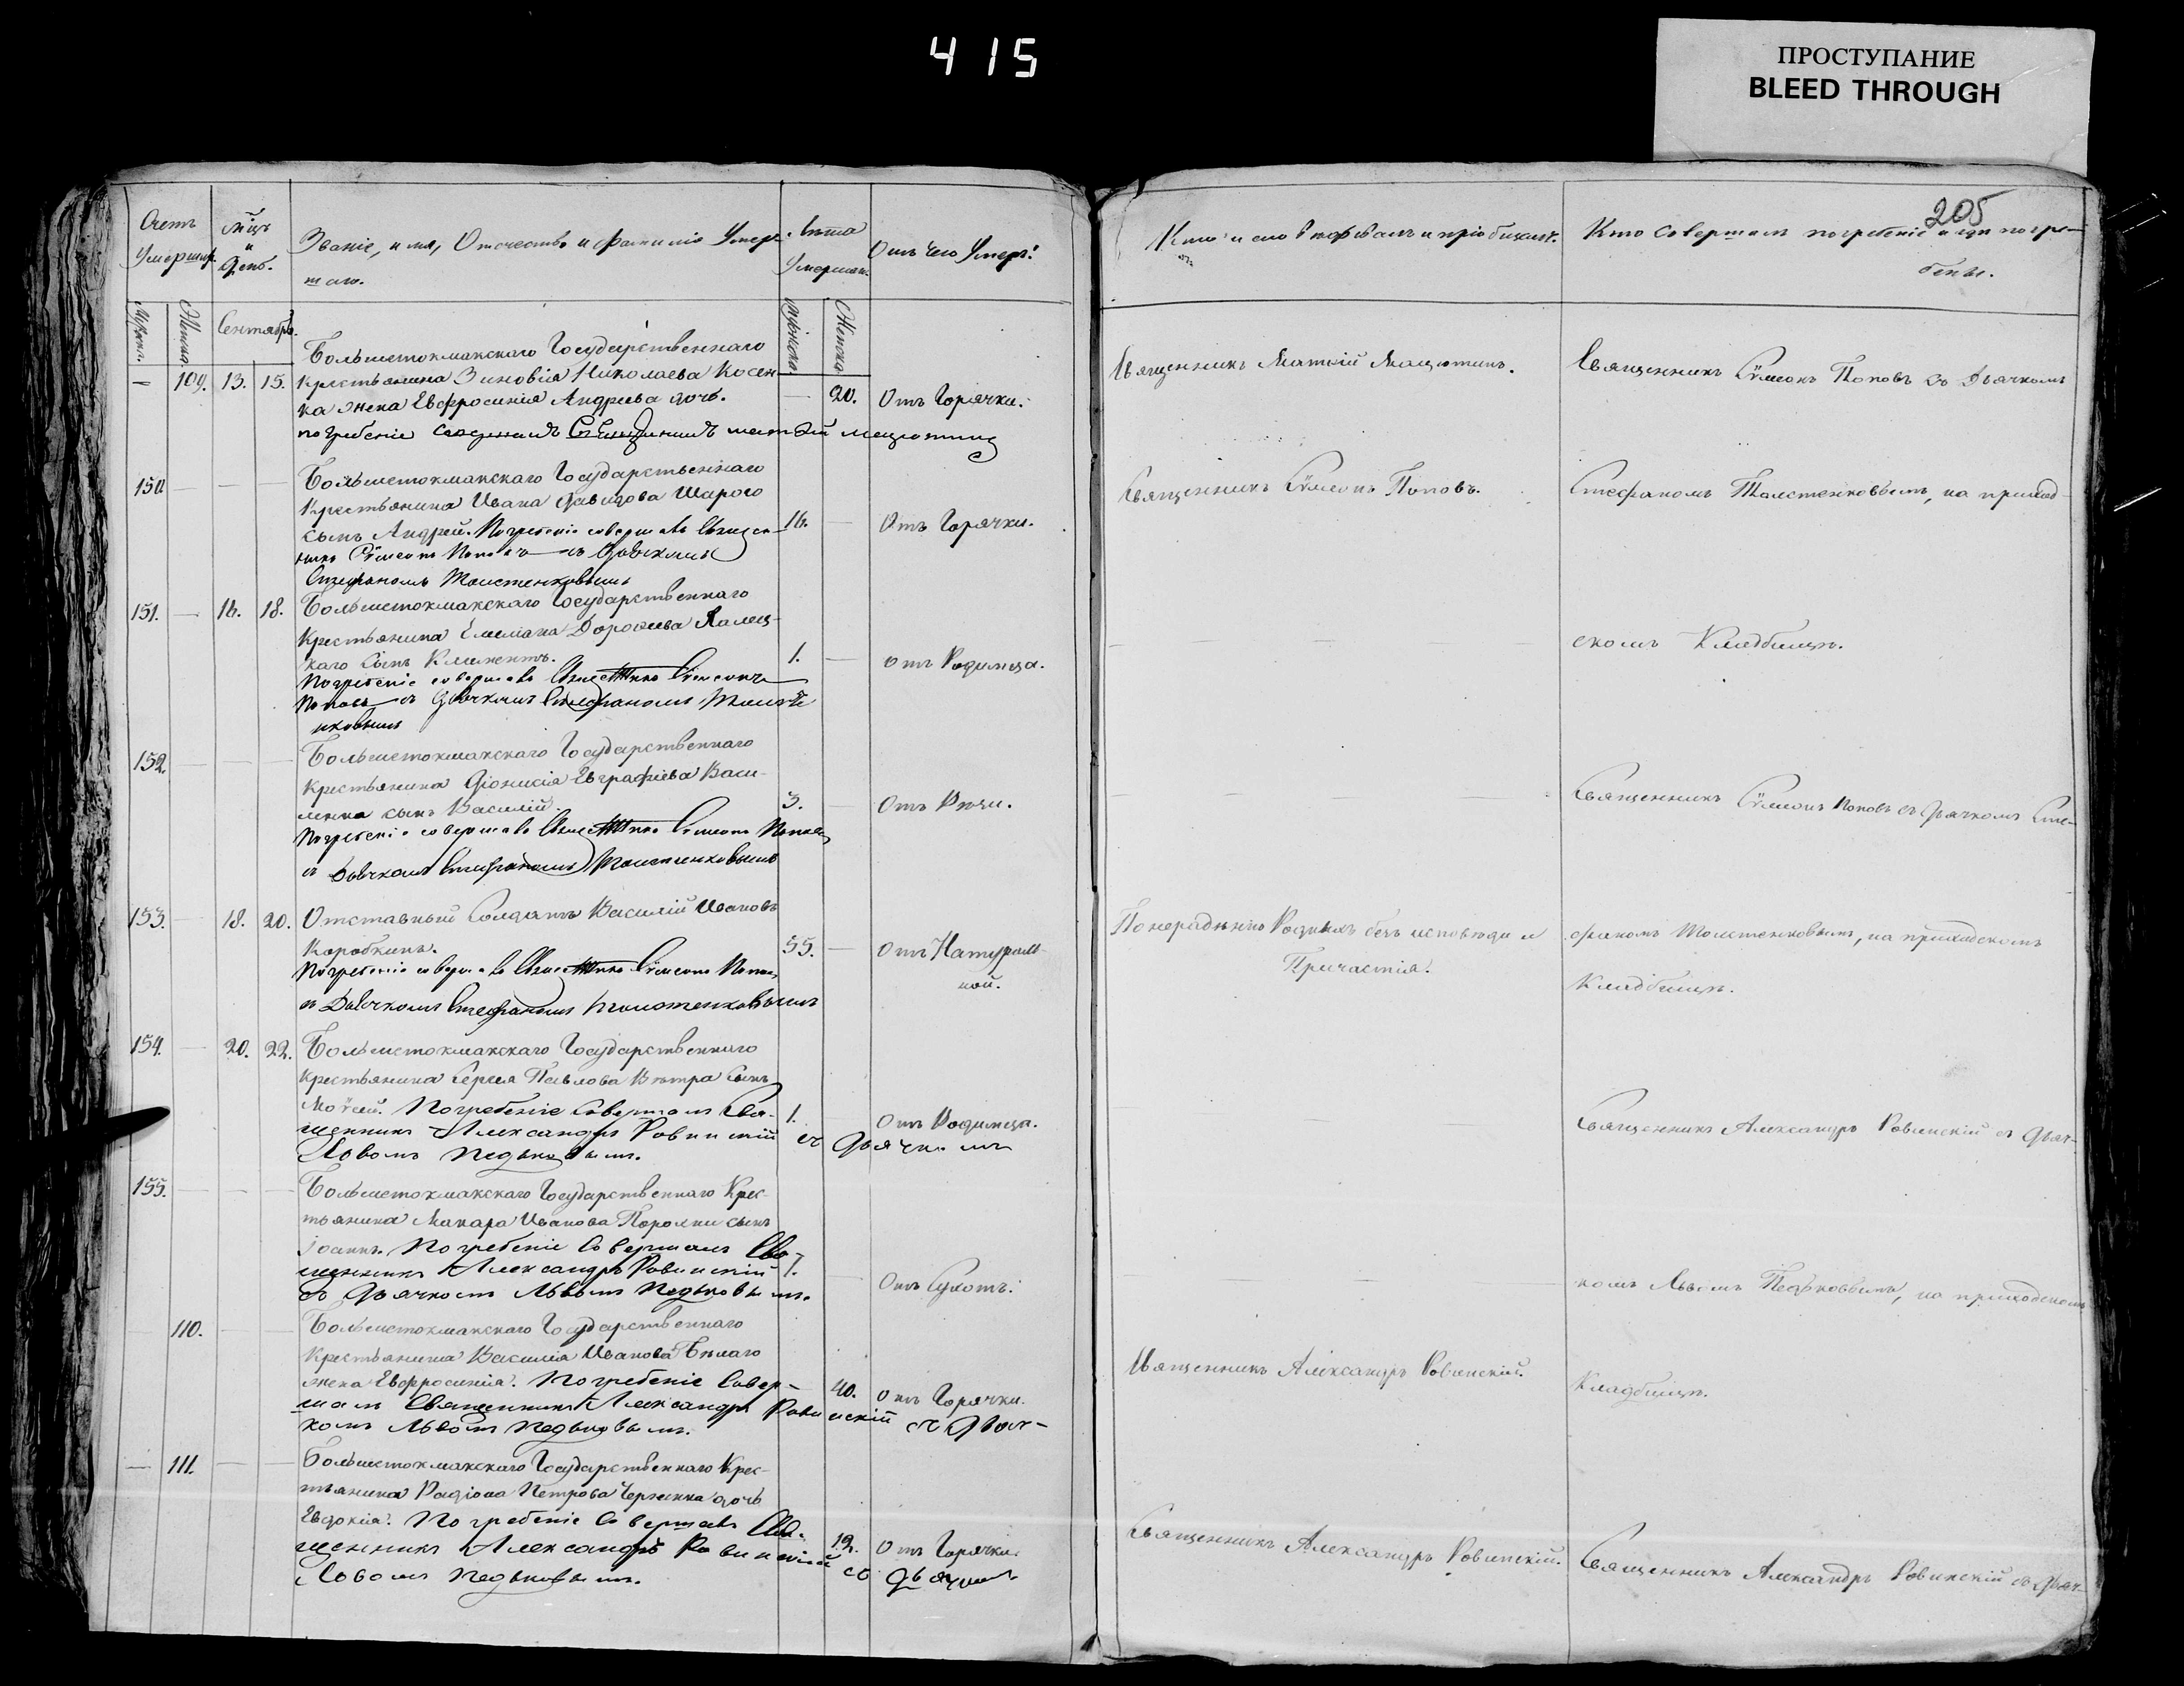 415
ПРОСТУПАНИЕ
BLEED THROUGH
205
Счетъ Умершир.
Мѣцъ и день.
Званіе, имя, Отчество и фамилія Умер-
шаго.
Лѣта Умершаго.
Отъ чего Умеръ.
Кто ихъ исповѣдывалъ и пріобщалъ.
Кто совершалъ погребеніе и гдѣ погре-
бены.
Мужеск.
Женска
Сентябрь.
Мужеска
Женска
Большетокмакскаго Государственнаго
— 109. 13. 15. Крестьянина Зиновія Николаева Косен-
ка жена Евфросинія Андреева дочь. — 20. Отъ Горячки.
погребеніе Священникъ
Священникъ Матѳій Мацютинъ.
Священникъ Сѵмеонъ Поповъ съ Дьячкомъ
150 — — — Большетокмакскаго Государственнаго
Крестьянина Ивана Давидова Шарого
сынъ Андрей. Погребеніе совершалъ Священ- 16. — Отъ Горячки.
никъ Сѵмеонъ Поповъ съ Дьячкомъ
Стефаномъ Толстенковымъ
Священникъ Сѵмеонъ Поповъ.
Стефаномъ Толстенковымъ, на приход-
151. — 16. 18. Большетокмакскаго Государственнаго
Крестьянина Емельяна Дорофеева
каго сынъ Климентъ. 1. — отъ Родимца.
Погребеніе совершалъ Симеонъ
Поповъ съ Дьячкомъ Стефаномъ Толсте
нковымъ
— — —
скомъ Кладбищѣ.
152. — — — Большетокмакскаго Государственнаго
Крестьянина Діонисія Евграфіева Васи-
ленка сынъ Василій. 3. — Отъ Кпчи.
Погребеніе совершалъ Симеонъ Поповъ
съ Дьячкомъ Стефаномъ Толстенковымъ
— — —
Священникъ Сѵмеонъ Поповъ съ Дьячкомъ Сте-
153. — 18. 20. Отставный Солдатъ Василій Ивановъ
Коробкинъ. 55. — Отъ Натураль-
ной.
Погребеніе совершалъ Сѵмеонъ Поповъ
съ Дьячкомъ Стефаномъ Толстенковымъ
По нерадѣнію Родныхъ безъ исповѣди и
Причастія.
фаномъ Толстенковымъ, на приходскомъ
Кладбищѣ.
154. — 20. 22. Большетокмакскаго Государственнаго
Крестьянина Сергея Павлова Вѣтра сынъ
Моѵсей. Погребеніе Совершалъ Свя- 1. Отъ Родимца.
щенникъ Александръ Ровинскій съ Дьячкомъ
Львомъ Педьковымъ.
— — —
Священникъ Александръ Ровинскій съ Дьяч-
155. — — — Большетокмакскаго Государственнаго Крес-
тьянина Макара Иванова сынъ
Іоаннъ. Погребеніе Совершалъ Свя-
щенникъ Александръ Ровинскій 1. Отъ Сухотъ.
съ Дьячкомъ Львомъ Педьковымъ.
— — —
комъ Львомъ Педьковымъ, на приходскомъ
110. — — Большетокмакскаго Государственнаго
Крестьянина Василія Иванова Бѣлаго
жена Евфросинія. Погребеніе Совер- 40. Отъ Горячки.
шалъ Священникъ Александръ Ровинскій съ Дьяч-
комъ Львомъ Педьковымъ.
Священникъ Александръ Ровинскій.
Кладбищѣ.
— 111. — — Большетокмакскаго Государственнаго Крес-
тьянина Родіона Петрова дочь
Евдокія. Погребеніе Совершалъ Свя-
щенникъ Александръ Ровинскій 12. Отъ Горячки.
съ Дьячкомъ
Львомъ Педьковымъ.
Священникъ Александръ Ровинскій.
Священникъ Александръ Ровинскій съ Дьяч-